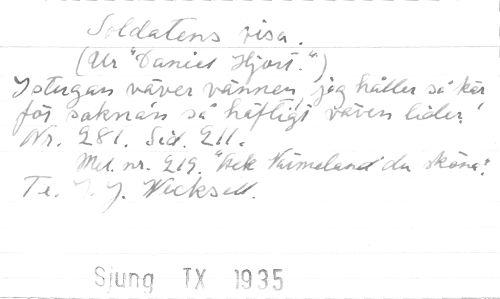 Soldatens visa.
(Ur "Daniel Hjort.")
I stugan väver vännen, jag håller så kär
för saknan så häftigt väven lider!
Nr. 281. Sid. 211.
Mel. nr. 219. "Ack Värmeland du sköna".
Te. J. J. Wecksell.
Sjung TX 1935